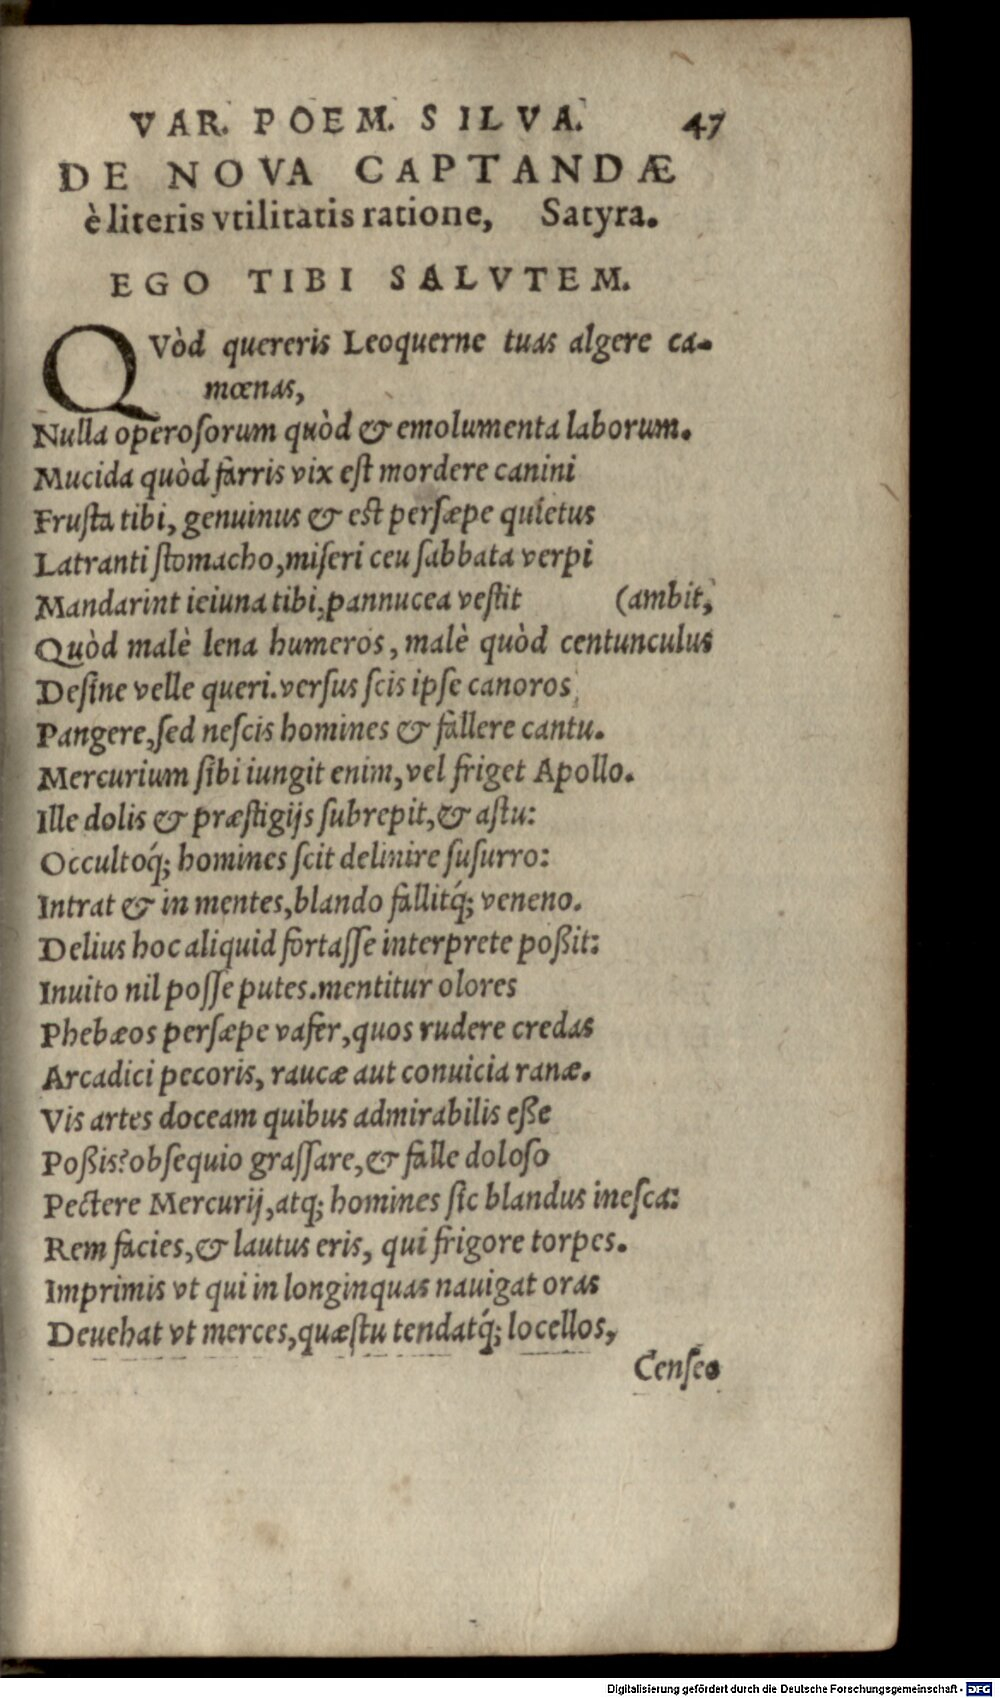 VAR. POEM. SILVA. 47
DE NOVA CAPTANDÆ
è literis vtilitatis ratione, Satyra.
EGO TIBI SALVTEM.
QVòd quereris Leoquerne tuas algere ca-
mœnas,
Nulla operoſorum quòd & emolumenta laborum.
Mucida quòd farris vix eſt mordere canini
Fruſta tibi, genuinus & eſt perſæpe quietus
Latranti ſtomacho, miſeri ceu ſabbata verpi
Mandarint ieiuna tibi, pannucea veſtit (ambit,
Quòd malè lena humeros, malè quòd centunculus
Deſine velle queri. verſus ſcis ipſe canoros
Pangere, ſed neſcis homines & fallere cantu.
Mercurium ſibi iungit enim, vel friget Apollo.
Ille dolis & præſtigijs ſubrepit, & aſtu:
Occultoq́; homines ſcit delinire ſuſurro:
Intrat & in mentes, blando fallitq́; veneno.
Delius hoc aliquid fortaſſe interprete poßit:
Inuito nil poſſe putes. mentitur olores
Phebæos perſæpe vafer, quos rudere credas
Arcadici pecoris, raucæ aut conuicia ranæ.
Vis artes doceam quibus admirabilis eße
Poßis? obſequio graſſare, & falle doloſo
Pectere Mercurij, atq; homines ſic blandus ineſca:
Rem facies, & lautus eris, qui frigore torpes.
Imprimis vt qui in longinquas nauigat oras
Deuehat vt merces, quæſtu tendatq́; locellos,
Cenſeo
Digitalisierung gefördert durch die Deutsche Forschungsgemeinschaft - DFG